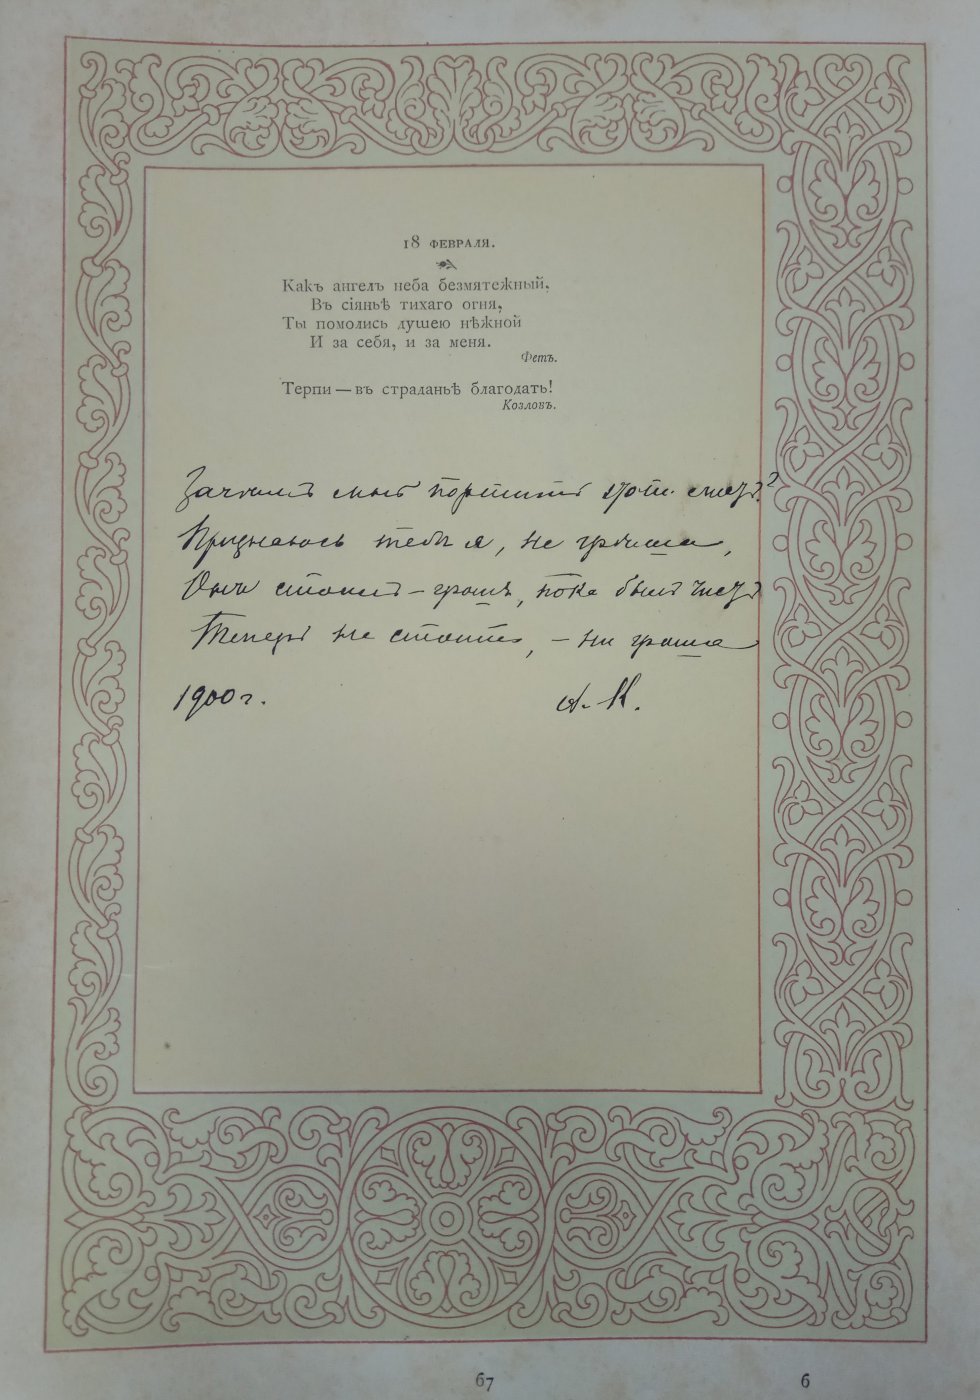 18 ФЕВРАЛЯ.
Какъ ангелъ неба безмятежный,
Въ сіяньѣ тихаго огня,
Ты помолись душею нѣжной
И за себя, и за меня.
Фетъ.
Терпи — въ страданьѣ благодать!
Козловъ.
Зачѣмъ мнѣ портить листъ?
Признаюсь тебѣ я, не грѣша,
Онъ стоилъ – грошъ, пока былъ чистъ
Теперь не стоитъ, – ни гроша
1900 г.
А. К.
67
6